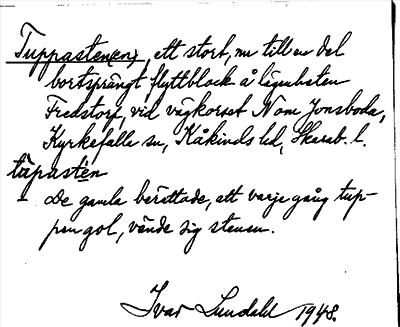 Tuppasten(en), ett stort, nu till en del
bortsprängt flyttblock å lägenheten
Fredstorp, vid vägkorset N om Jonsboda,
Kyrkefalla sn, Kåkinds hd, Skarab. l.
tùpastèn
De gamla berättade, att varje gång tup-
pen gol, vände sig stenen.
Ivar Lundahl 1948.